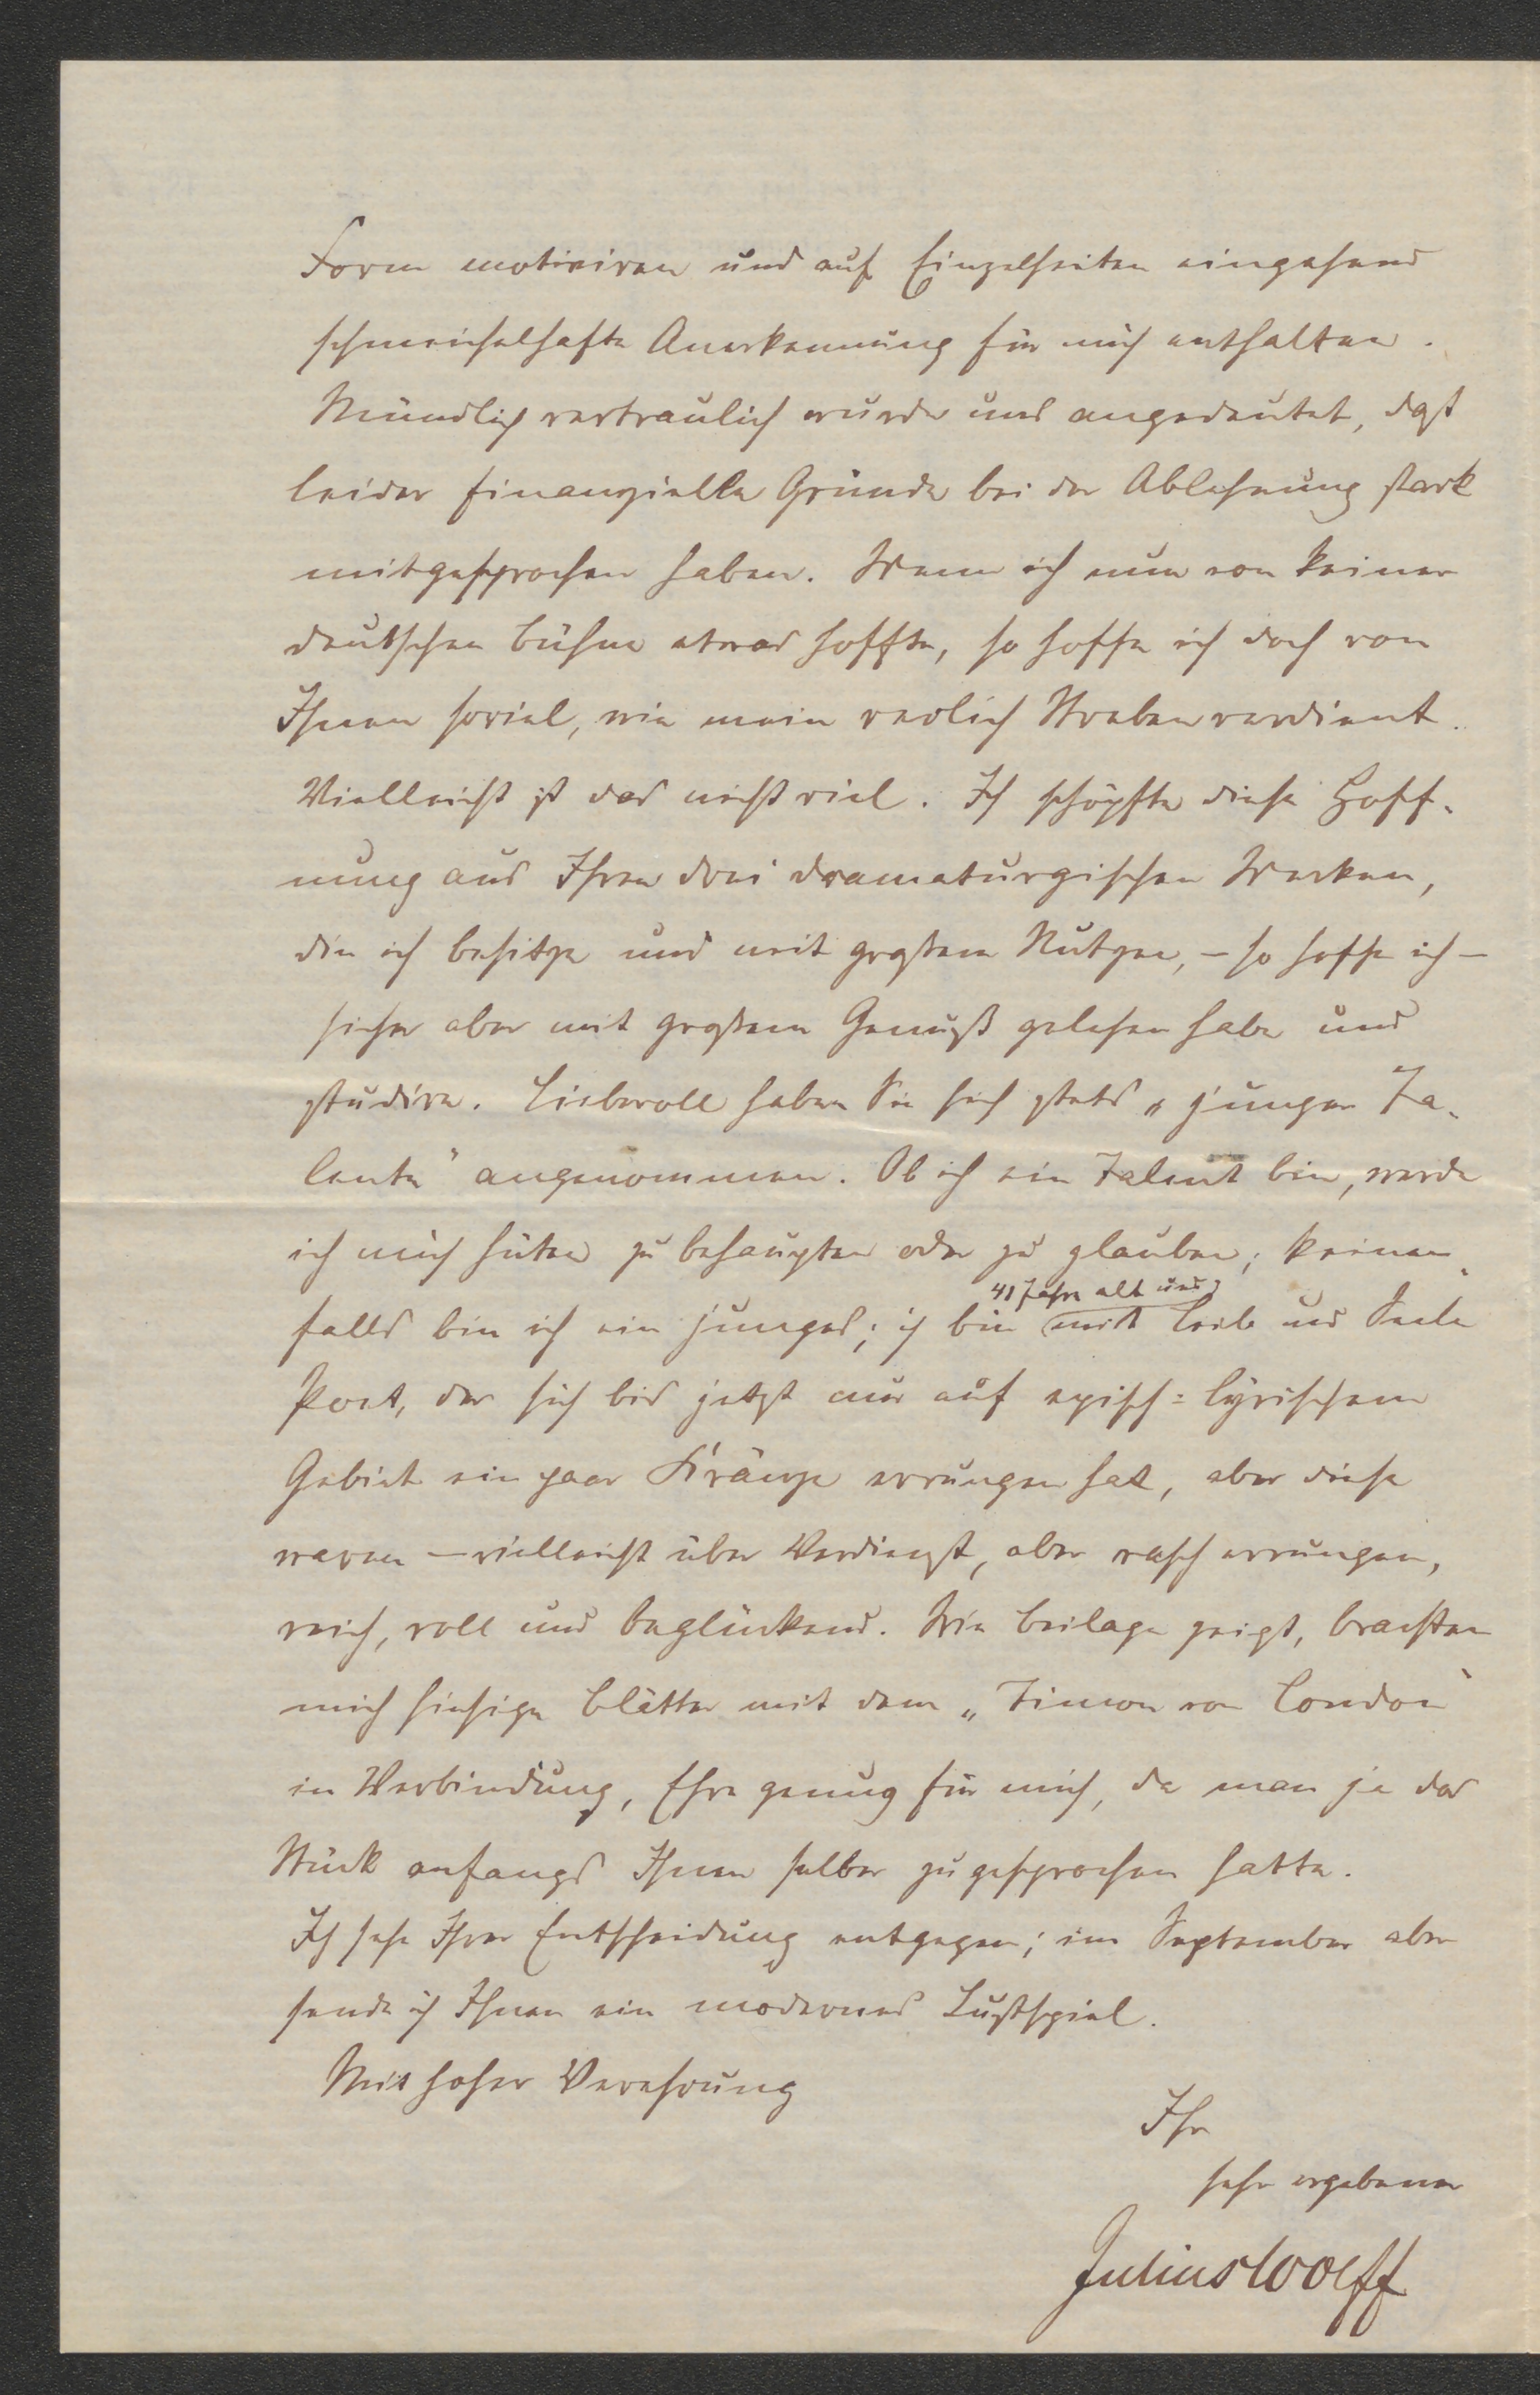 Form motiviren und auf Einzelheiten eingehend
schmeichelhafte Anerkennung für mich enthalten.
Mündlich vertraulich wurde uns angedeutet, daß
leider finanzielle Gründe bei der Ablehnung stark
mitgesprochen haben. Wenn ich nun von keiner
deutschen Bühne etwas hoffte, so hoffe ich doch von
Ihnen soviel, wie mein redlich Streben verdient.
Vielleicht ist das nicht viel. Ich schöpfte diese Hoff-
nung aus Ihren drei dramaturgischen Werken,
die ich besitze und mit großem Nutzen, – so hoffe ich –
sicher aber mit großem Genuß gelesen habe und
studire. Liebevoll haben Sie sich stets „junger Ta-
lente“ angenommen. Ob ich ein Talent bin, werde
ich mich hüten zu behaupten oder zu glauben; keinen-
falls bin ich ein junges; ich bin 41 Jahre alt und mit Leib und Seele
Poet, der sich bis jetzt nur auf episch-lyrischem
Gebiet ein paar Kränze errungen hat, aber diese
waren – vielleicht über Verdienst, aber rasch errungen,
reich, voll und beglückend. Wie Beilage zeigt, brachten
mich hiesige Blätter mit dem „Timon von London“
in Verbindung, Ehre genug für mich, da man ja das
Stück anfangs Ihnen selber zugesprochen hatte.
Ich sehe Ihrer Entscheidung entgegen; im September aber
sende ich Ihnen ein modernes Lustspiel.
Mit hoher Verehrung
Ihr
sehr ergebener
Julius Wolff